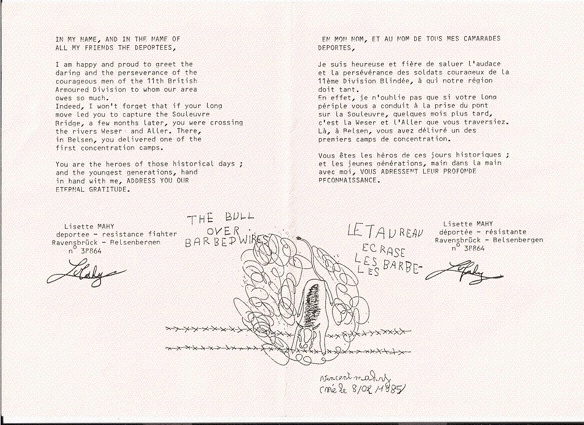 IN MY NAME, AND IN THE NAME OF
ALL MY FRIENDS THE DEPORTEES,
I am happy and proud to greet the
daring and the perseverance of the
courageous men of the 11th British
Armoured Division to whom our area
owes so much.
Indeed, I won't forget that if your long
move led you to capture the Souleuvre
Bridge, a few months later, you were crossing
the rivers Weser and Aller. There,
in Belsen, you delivered one of the
first concentration camps.
You are the heroes of those historical days ;
and the youngest generations, hand
in hand with me, ADDRESS YOU OUR
ETERNAL GRATITUDE.
Lisette MAHY
deportee - resistance fighter
Ravensbrück - Belsenbergen
n° 38864
LMahy
EN MON NOM, ET AU NOM DE TOUS MES CAMARADES
DEPORTES,
Je suis heureuse et fière de saluer l'audace
et la persévérance des soldats courageux de la
11ème Division Blindée, à qui notre région
doit tant.
En effet, je n'oublie pas que si votre long
périple vous a conduit à la prise du pont
sur la Souleuvre, quelques mois plus tard,
c'est la Weser et l'Aller que vous traversiez.
Là, à Belsen, vous avez délivré un des
premiers camps de concentration.
Vous êtes les héros de ces jours historiques ;
et les jeunes générations, main dans la main
avec moi, VOUS ADRESSENT LEUR PROFONDE
RECONNAISSANCE.
Lisette MAHY
déportée - résistante
Ravensbrück - Belsenbergen
n° 38864
LMahy
THE BULL
OVER
BARBEDWIRES
LE TAUREAU
ECRASE
LES BARBE-
LES
Vincent mahy
(né le 8/02/1985)